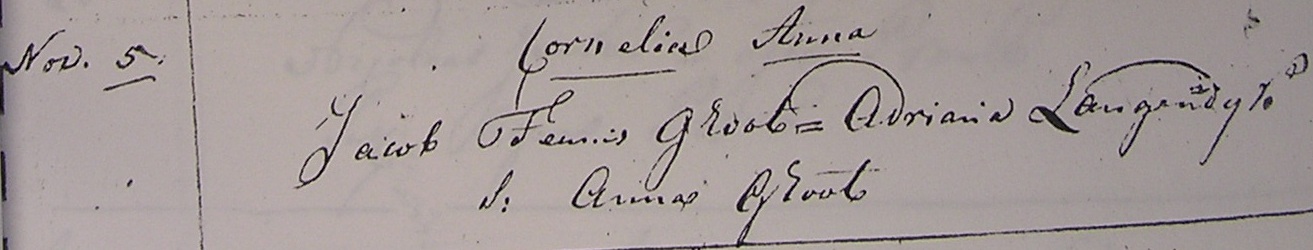 Nov. 5. Cornelia Anna
Jacob Teunis Groot = Adriana Langendyk
S: Anna Groot